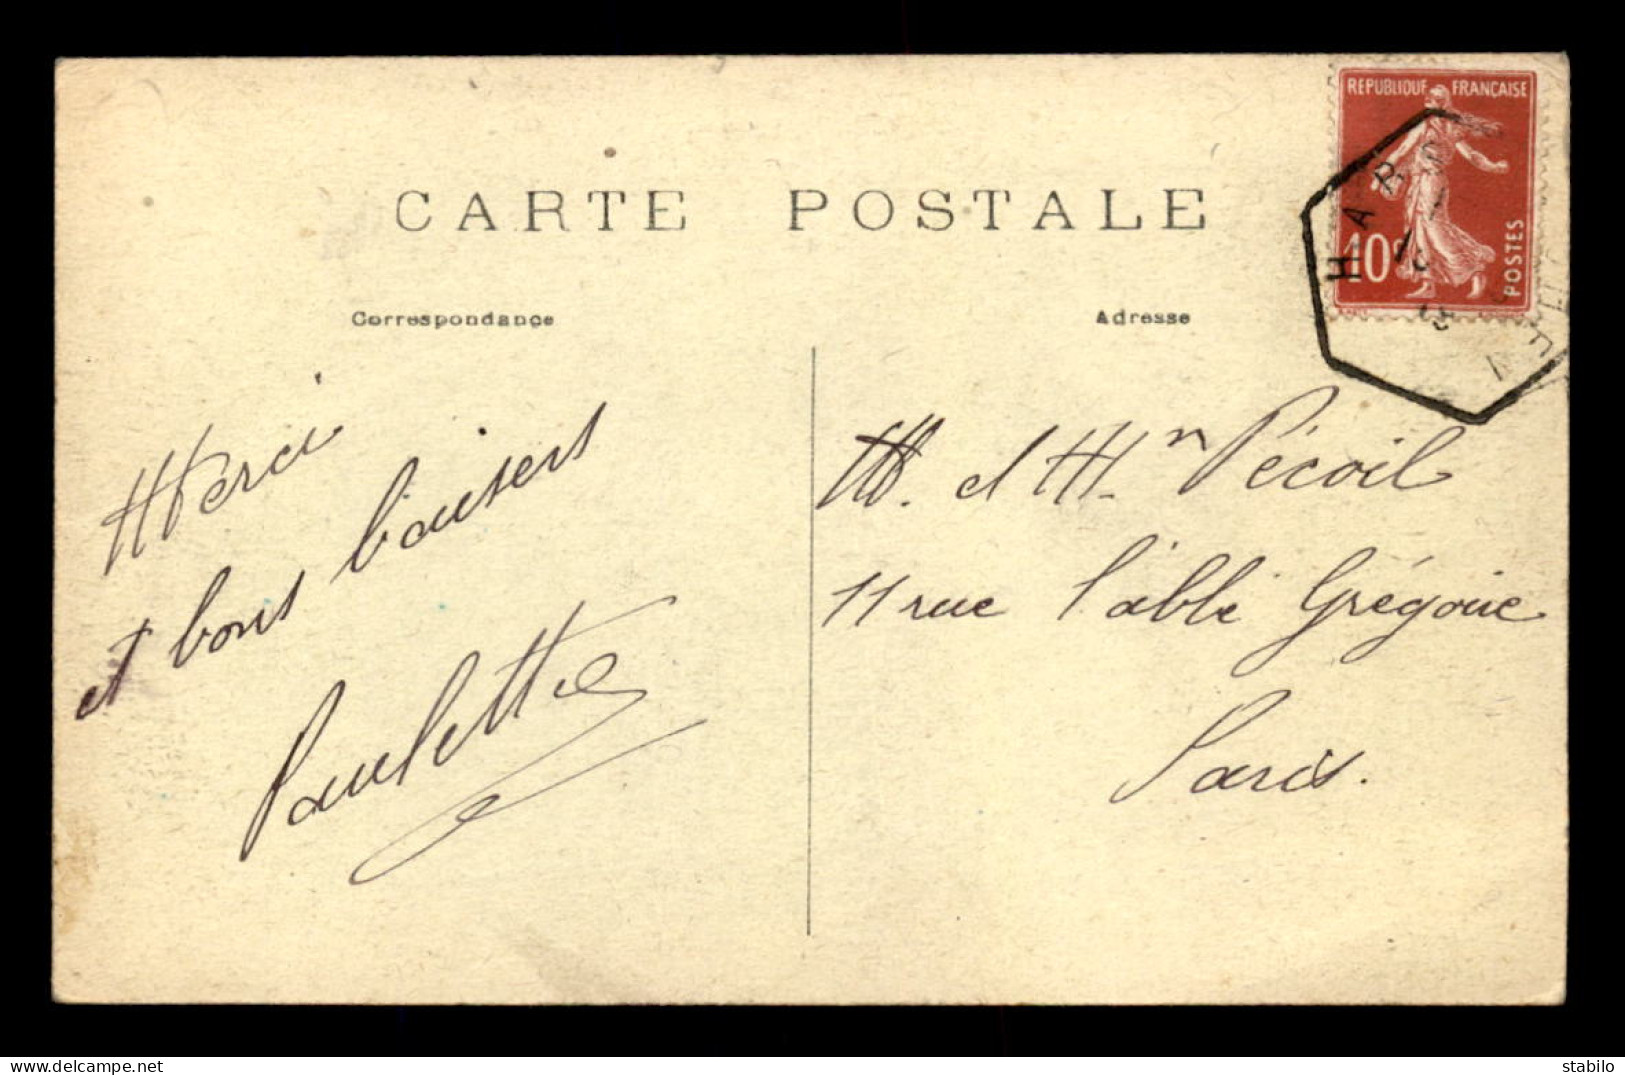 CARTE POSTALE
REPUBLIQUE FRANÇAISE
10c
POSTES
Correspondance
Adresse
Merci
et bons baisers
Paulette
M. et M.n Pécoil
11 rue l'abbé Grégoire
Paris.
delcampe.net
stabilo